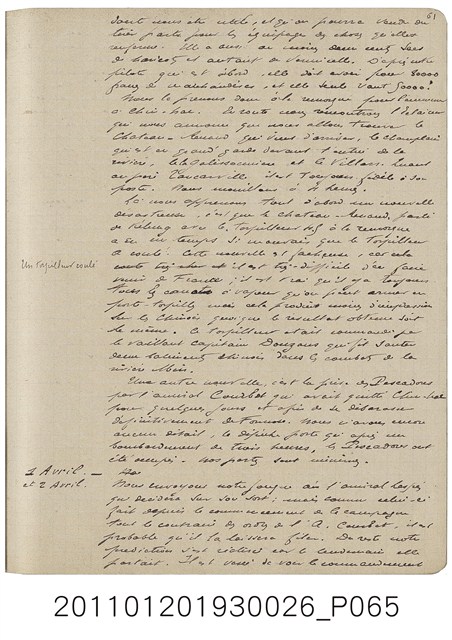 61
dont nous été utile, et qu'on pourra vendre du
très partie pour les équipages des choses qu'elles
renferme. Il a aussi au moins deux cents sacs
de haricots et autant de vermicelle. D'après le
pilote qui est à bord, elle doit avoir pour 80000
francs de marchandises, et elle seule vaut 50000f
Nous la prenons donc à la remorque pour l'amener
à Chin-hae. En route nous rencontrons l'éclaireur
qui nous annonce que nous allons trouver le
Chateau-Renaud, qui vient d'arriver, le Champlain
qui est en grand'garde devant l'entrée de la
rivière, la Galissonnière et le Villars. Quant
au pauvre Tancarville il est toujours fidèle à son
poste. Nous mouillons à 4 heures.
Ici nous apprenons tout d'abord une nouvelle
désastreuse, c'est que le Chateau-Renaud, parti
de Kelung avec le torpilleur 45 à la remorque
a eu un temps si mauvais que le torpilleur
Un torpilleur coulé
a coulé. Cette nouvelle est fâcheuse, car cela
coute très cher et il est très difficile d'en faire
venir de France; il est vrai qu'il y a toujours
tous les canots à vapeur qu'on peut armer en
porte-torpille mais cela produit moins d'impression
sur les Chinois quoique le résultat obtenu soit
le même. Le torpilleur était commandé par
le vaillant capitaine Douzans qui fit sauter
deux batiments chinois dans le combat de la
rivière Min.
Une autre nouvelle, c'est la prise des Pescadores
par l'amiral Courbet qui avait quitté Chin-hae
pour quelques jours et afin de se débarasser
définitivement de Formose. Nous n'avons encore
aucun détail, la dépêche porte qu'après un
bombardement de trois heures, les Pescadores ont
été occupés. Nos pertes sont minimes.
1 Avril. —
et 2 Avril.
Nous envoyons notre jonque à l'amiral Lespès
qui décidera sur son sort; mais comme celui-ci
fait depuis le commencement de la campagne
tout le contraire des ordres de l'A. Courbet, il est
probable qu'il la laissera filer. De reste notre
prédiction s'est réalisée car le lendemain elle
partait. Il est vexé de voir le commandement
201101201930026_P065